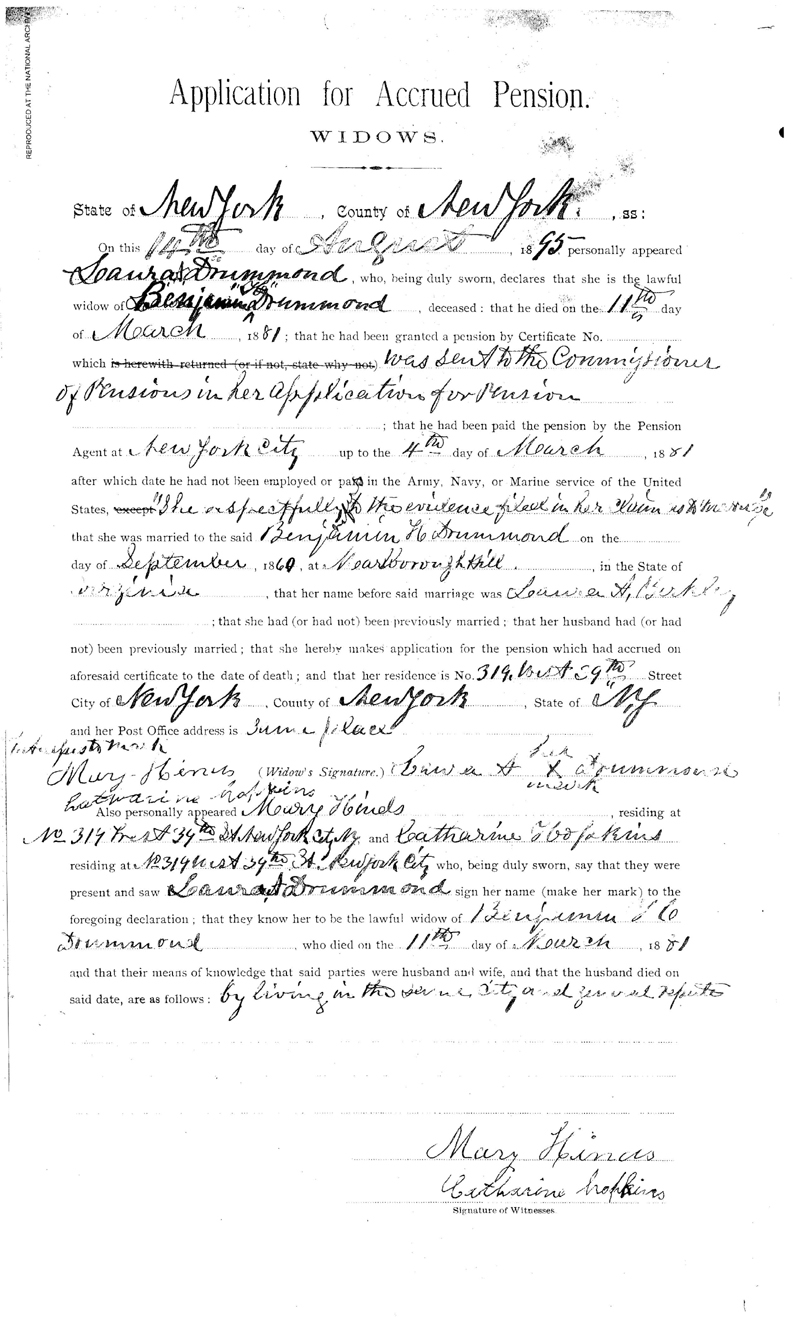 REPRODUCED AT THE NATIONAL ARCHIVES
Application for Accrued Pension.
WIDOWS.
State of New York, County of New York, ss:
On this 14th day of August, 1895 personally appeared
Laura A Drummond, who, being duly sworn, declares that she is the lawful
widow of Benjamin H Drummond, deceased: that he died on the 11th day
of March, 1881; that he had been granted a pension by Certificate No.
which is herewith returned (or if not, state why not) was sent to the Commissioner
of Pensions in her application for Pension
; that he had been paid the pension by the Pension
Agent at New York City up to the 4th day of March, 1881
after which date he had not been employed or paid in the Army, Navy, or Marine service of the United
States, except She respectfully to the evidence filed in her claim as to
that she was married to the said Benjamin H Drummond on the
day of September, 1860, at, in the State of
Virginia, that her name before said marriage was Laura A,
; that she had (or had not) been previously married; that her husband had (or had
not) been previously married; that she hereby makes application for the pension which had accrued on
aforesaid certificate to the date of death; and that her residence is No. 319 West 39th Street
City of New York, County of New York, State of N.Y
and her Post Office address is same place
Attest to mark her
Mary Hinds (Widow's Signature.) Laura A X Drummond
Catharine Hopkins mark
Also personally appeared Mary Hinds, residing at
No 319 West 39th St New York City Ny and Catharine Hopkins
residing at No 319 West 39th St. New York City who, being duly sworn, say that they were
present and saw Laura A Drummond sign her name (make her mark) to the
foregoing declaration; that they know her to be the lawful widow of Benjamin H
Drummond, who died on the 11th day of March, 1881
and that their means of knowledge that said parties were husband and wife, and that the husband died on
said date, are as follows: by living in the same City and general repute
Mary Hinds
Catharine Hopkins
Signature of Witnesses.